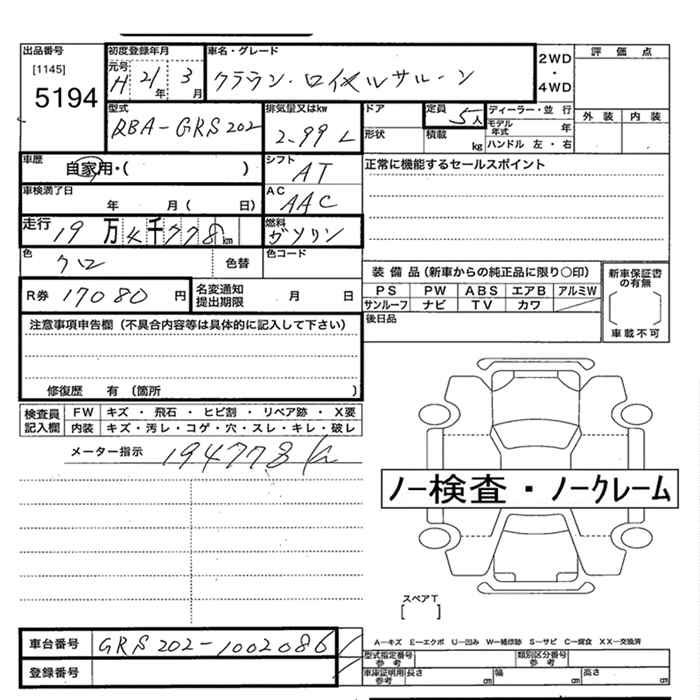 出品番号 初度登録年月 車名・グレード 2WD・4WD 評価点
[1145] 元号 H 21年 3月 クラウン・ロイヤルサルーン
5194
型式 排気量又はkw ドア 定員 5人 ディーラー・並行 外装 内装
DBA-GRS202 2.99 L 形状 積載 kg モデル年式 年
ハンドル 左・右
車歴 自家用・( ) シフト AT 正常に機能するセールスポイント
車検満了日 年 月( 日) AC AAC
走行 19万4千778km 燃料 ガソリン
色 クロ 色替 色コード
装備品(新車からの純正品に限り○印) 新車保証書の有無
PS PW ABS エアB アルミW
R券 17080円 名変通知提出期限 月 日 サンルーフ ナビ TV カワ
後日品 車載不可
注意事項申告欄(不具合内容等は具体的に記入して下さい)
修復歴 有(箇所 )
検査員記入欄 FW キズ・飛石・ヒビ割・リペア跡・X要
内装 キズ・汚レ・コゲ・穴・スレ・キレ・破レ
メーター指示 194778
ノー検査・ノークレーム
スペアT
[ ]
車台番号 GRS202-1002086
A-キズ E-エクボ U-凹み W-補修跡 S-サビ C-腐食 XX-交換済
型式指定番号 参考 類別区分番号 参考
登録番号 車庫証明用参考 長さ cm 幅 cm 高さ cm